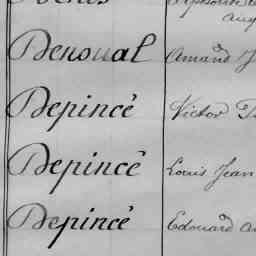 Denoual Amand J
Depincé Victor
Depincé Louis Jean
Depincé Edouard